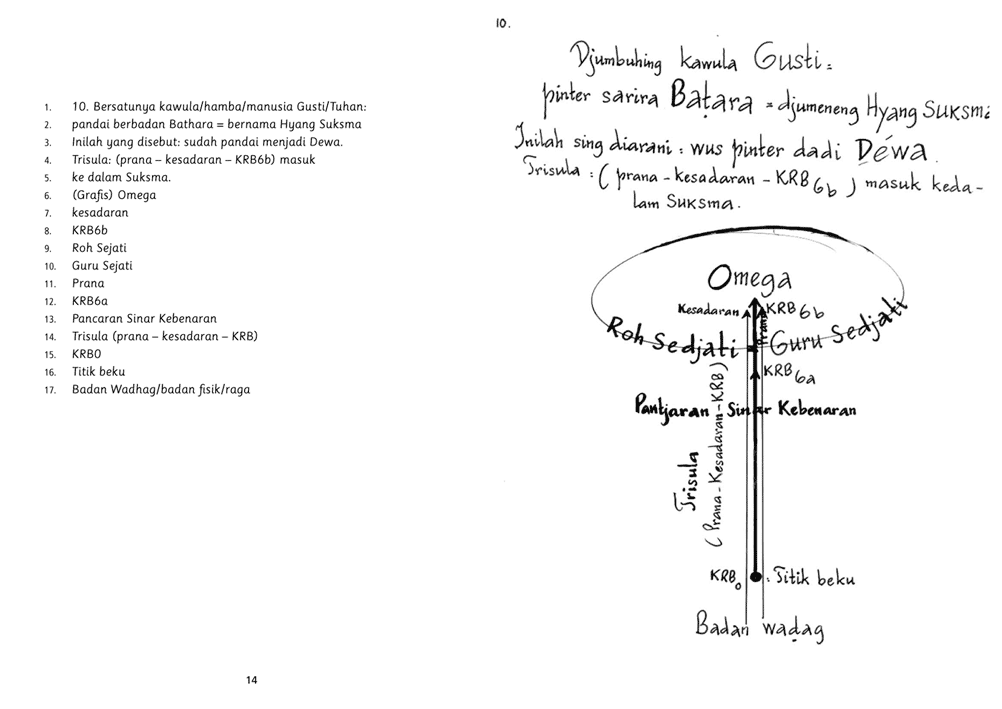 1. 10. Bersatunya kawula/hamba/manusia Gusti/Tuhan:
2. pandai berbadan Bathara = bernama Hyang Suksma
3. Inilah yang disebut: sudah pandai menjadi Dewa.
4. Trisula: (prana – kesadaran – KRB6b) masuk
5. ke dalam Suksma.
6. (Grafis) Omega
7. kesadaran
8. KRB6b
9. Roh Sejati
10. Guru Sejati
11. Prana
12. KRB6a
13. Pancaran Sinar Kebenaran
14. Trisula (prana – kesadaran – KRB)
15. KRB0
16. Titik beku
17. Badan Wadhag/badan fisik/raga
14
10.
Djumbuhing kawula Gusti =
pinter sarira Baṭara = djumeneng Hyang Suksma
Inilah sing diarani : wus pinter dadi Déwa.
Trisula : ( prana - kesadaran - KRB6b ) masuk keda-
lam Suksma.
Omega
Kesadaran
KRB6b
Prana
Roh Sedjati
Guru Sedjati
KRB6a
Pantjaran Sinar Kebenaran
Trisula
( Prana - Kesadaran - KRB )
KRB0 : Titik beku
Badan waḍag